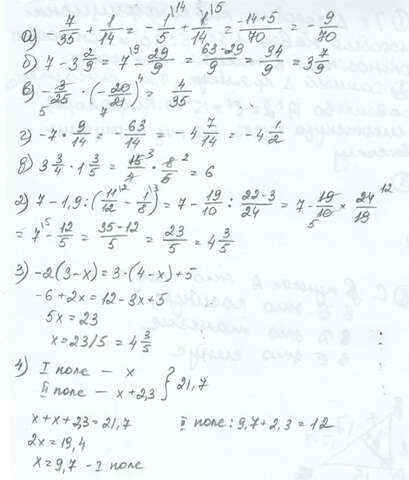 а) -7/35 + 1/14 = -1/5 + 1/14 = (-14+5)/70 = -9/70
б) 7 - 3 2/9 = 7 - 29/9 = (63-29)/9 = 34/9 = 3 7/9
в) -3/25 · (-20/21) = 4/35
г) -7 · 9/14 = -63/14 = -4 7/14 = -4 1/2
д) 3 3/4 · 1 3/5 = 15/4 · 8/5 = 6
2) 7 - 1,9 : (11/12 - 1/8) = 7 - 19/10 : (22-3)/24 = 7 - 19/10 × 24/19
= 7 - 12/5 = (35-12)/5 = 23/5 = 4 3/5
3) -2(3-x) = 3·(4-x)+5
-6+2x = 12-3x+5
5x = 23
x = 23/5 = 4 3/5
4) I поле - x
II поле - x+2,3 } 21,7
x+x+2,3 = 21,7
2x = 19,4
x = 9,7 - I поле
II поле: 9,7+2,3 = 12